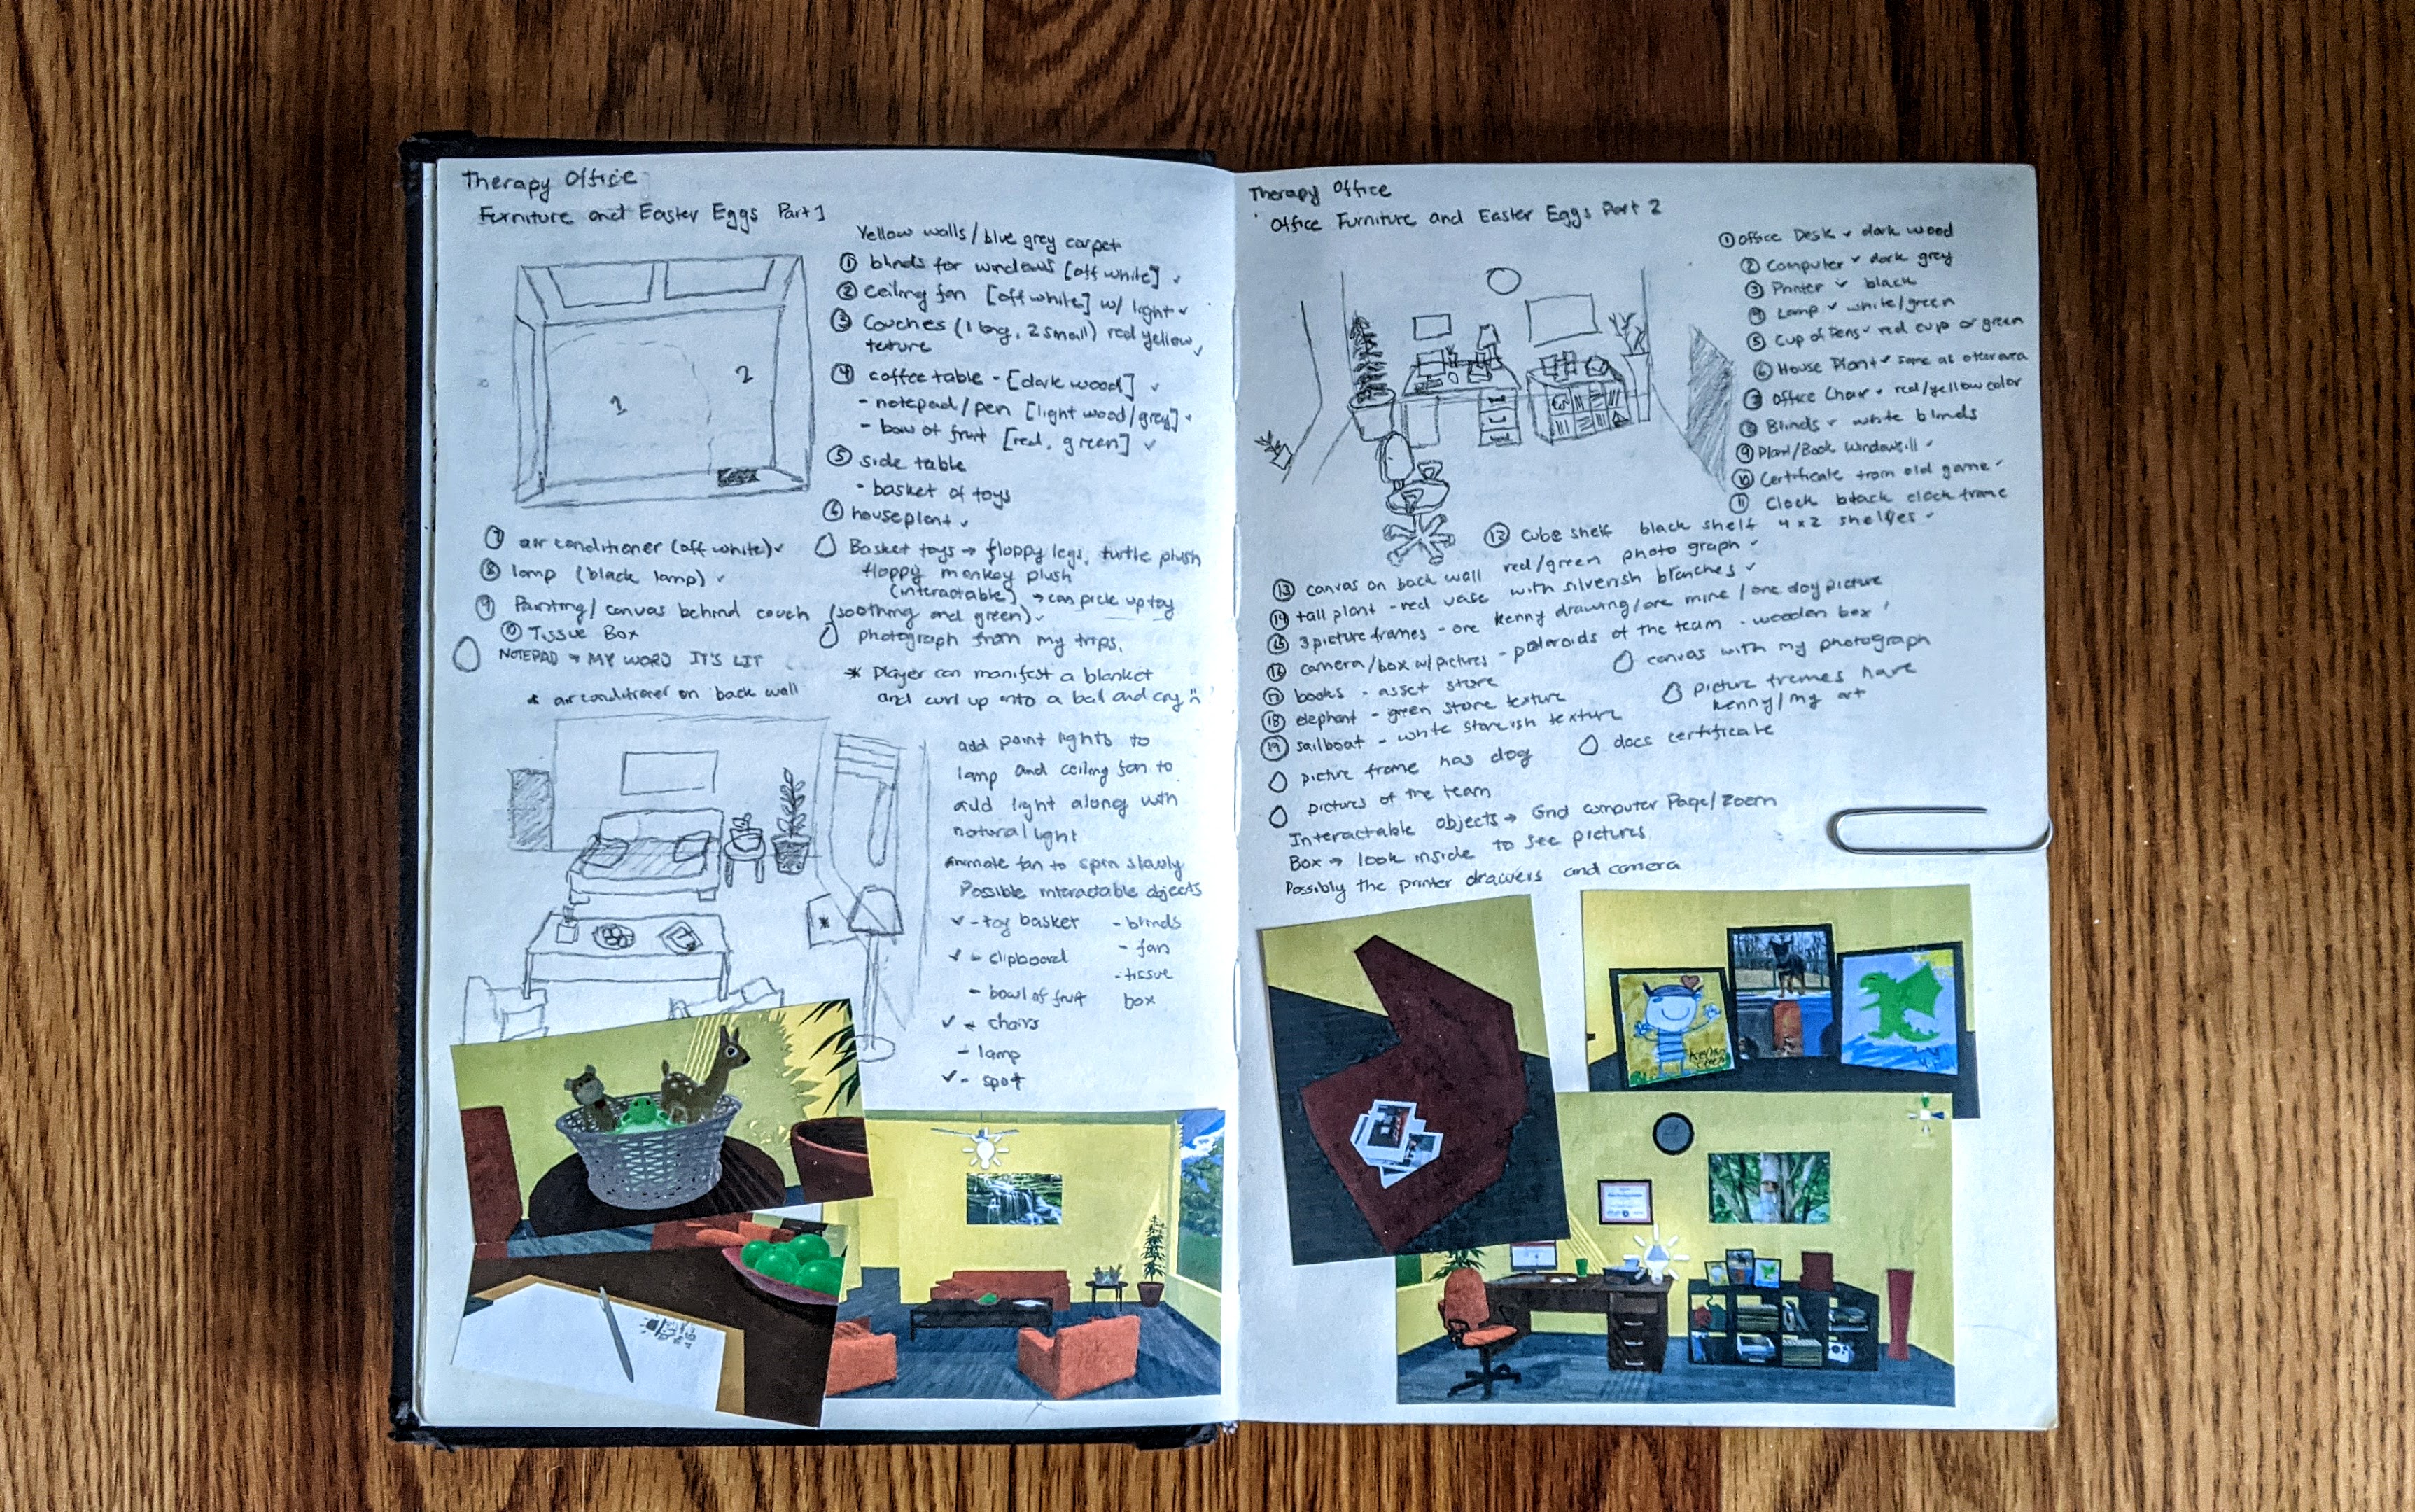 Therapy Office
Furniture and Easter Eggs Part 1
Yellow walls/blue grey carpet
① blinds for windows [off white] ✓
② ceiling fan [off white] w/ light ✓
③ Couches (1 long, 2 small) red yellow
texture ✓
④ coffee table - [dark wood] ✓
- notepad/pen [light wood/grey] ✓
- bowl of fruit [red, green] ✓
⑤ side table
- basket of toys
⑥ houseplant ✓
1
2
⑦ air conditioner (off white) ✓
⑧ lamp (black lamp) ✓
⑨ Painting/canvas behind couch (soothing and green) ✓
⑩ Tissue Box
NOTEPAD → MY WORD IT'S LIT
* air conditioner on back wall
Basket toys → floppy legs, turtle plush
floppy monkey plush
(interactable) → can pick up toy
photograph from my trips.
* Player can manifest a blanket
and curl up into a ball and cry
add point lights to
lamp and ceiling fan to
add light along with
natural light
Animate fan to spin slowly
Possible interactable objects
✓ - toy basket
✓ - clipboard
- bowl of fruit
✓ - chairs
- lamp
✓ - spot
- blinds
- fan
- tissue
box
Therapy Office
Office Furniture and Easter Eggs Part 2
① Office Desk ✓ dark wood
② Computer ✓ dark grey
③ Printer ✓ black
④ Lamp ✓ white/green
⑤ Cup of Pens ✓ red cup or green
⑥ House Plant ✓ same as other area
⑦ Office Chair ✓ red/yellow color
⑧ Blinds ✓ white blinds
⑨ Plant/Book Windowsill ✓
⑩ Certificate from old game ✓
⑪ Clock black clock frame
⑫ Cube shelf black shelf 4x2 shelves ✓
⑬ canvas on back wall red/green photograph ✓
⑭ tall plant - red vase with silverish branches ✓
⑮ 3 picture frames - one kenny drawing/one mine/one dog picture
⑯ camera/box w/pictures - polaroids of the team - wooden box
⑰ books - asset store
⑱ elephant - green stone texture
⑲ sailboat - white stoneish texture
canvas with my photograph
picture frames have
kenny/my art
picture frame has dog
docs certificate
pictures of the team
Interactable objects → Gnd computer Page/Zoom
Box → look inside to see pictures
Possibly the printer drawers and camera